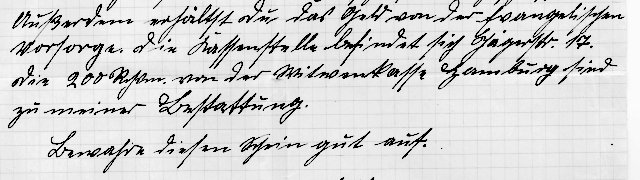 Außerdem erhältst du das Geld von der Evangelischen
Vorsorge. Die Kassenstelle befindet sich Jägerstr. 17.
Die 200 Rchm. von der Witwenkasse Hamburg sind
zu meiner Bestattung.
Bewahre diesen Schein gut auf.